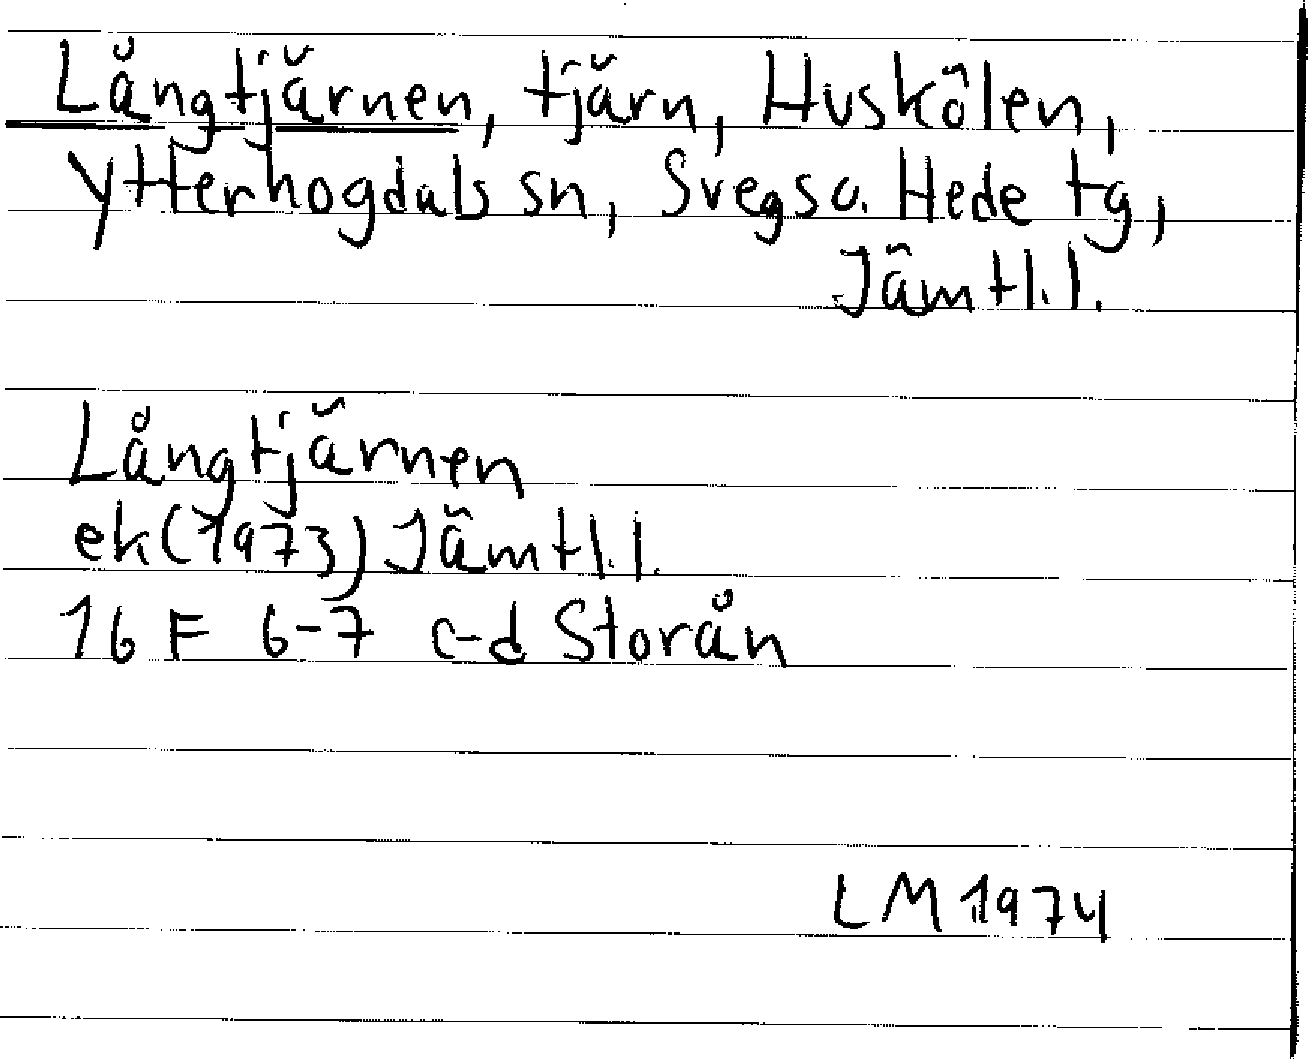 Långtjärnen, tjärn, Huskölen,
Ytterhogdals sn, Svegs o. Hede tg,
Jämtl. l.
Långtjärnen
ek (1973) Jämtl. l.
16 F 6-7 c-d Storån
LM 1974